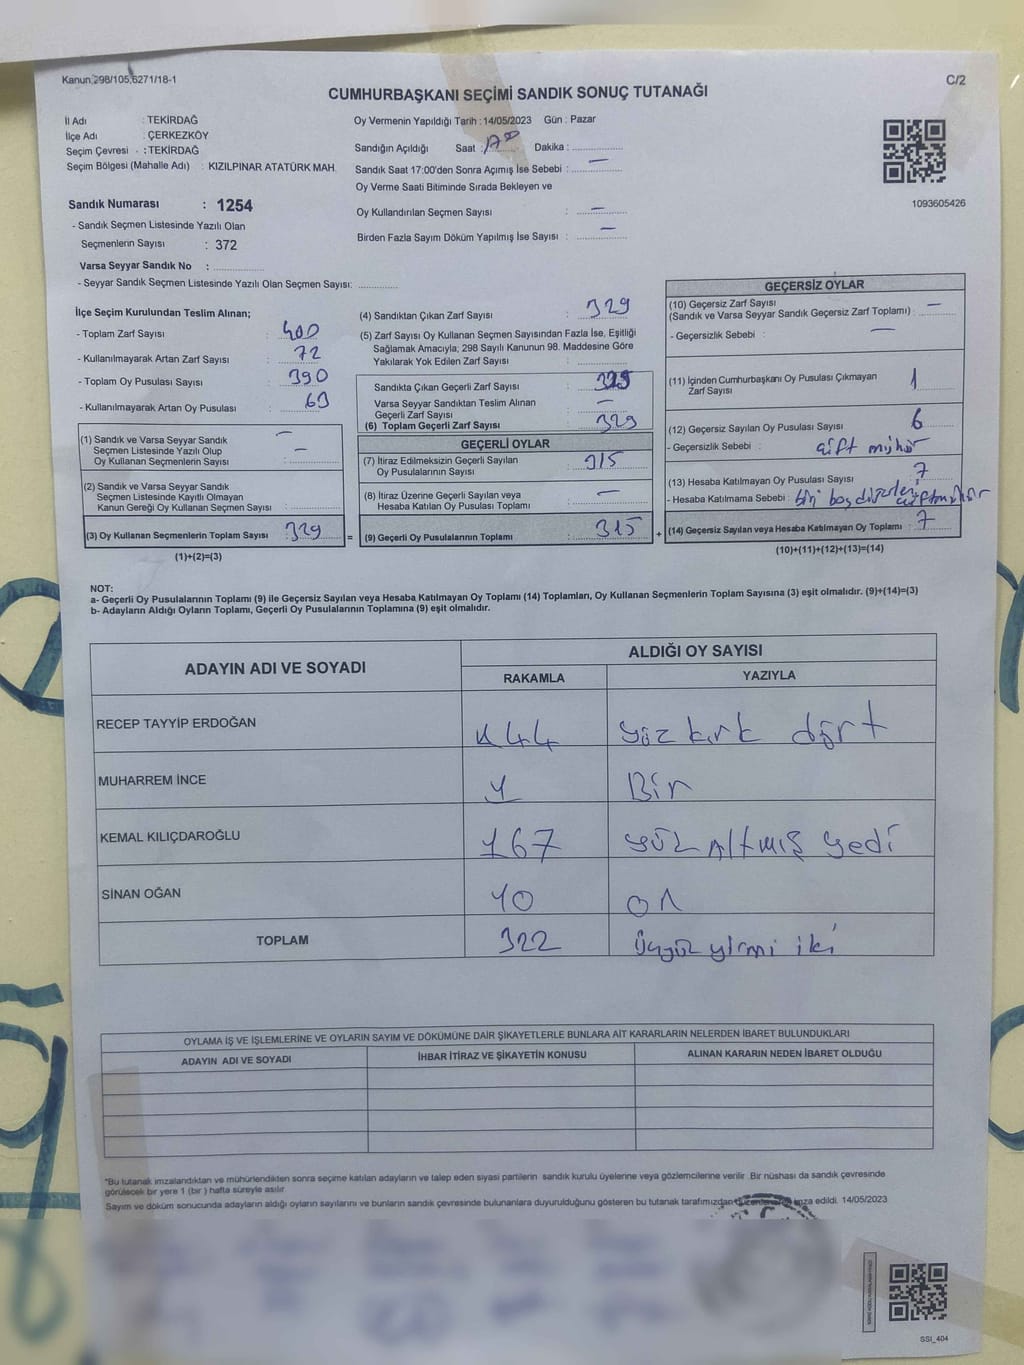 Kanun:298/105,6271/18-1
C/2
CUMHURBAŞKANI SEÇİMİ SANDIK SONUÇ TUTANAĞI
İl Adı : TEKİRDAĞ
İlçe Adı : ÇERKEZKÖY
Seçim Çevresi : TEKİRDAĞ
Seçim Bölgesi (Mahalle Adı) : KIZILPINAR ATATÜRK MAH.
Sandık Numarası : 1254
- Sandık Seçmen Listesinde Yazılı Olan
Seçmenlerin Sayısı : 372
Varsa Seyyar Sandık No :
- Seyyar Sandık Seçmen Listesinde Yazılı Olan Seçmen Sayısı:
Oy Vermenin Yapıldığı Tarih : 14/05/2023 Gün : Pazar
Sandığın Açıldığı Saat : 17 00 Dakika :
Sandık Saat 17:00'den Sonra Açımış İse Sebebi : —
Oy Verme Saati Bitiminde Sırada Bekleyen ve
Oy Kullandırılan Seçmen Sayısı : —
Birden Fazla Sayım Döküm Yapılmış İse Sayısı : —
1093605426
İlçe Seçim Kurulundan Teslim Alınan;
- Toplam Zarf Sayısı : 400
- Kullanılmayarak Artan Zarf Sayısı : 72
- Toplam Oy Pusulası Sayısı : 390
- Kullanılmayarak Artan Oy Pusulası : 63
(1) Sandık ve Varsa Seyyar Sandık
Seçmen Listesinde Yazılı Olup
Oy Kullanan Seçmenlerin Sayısı : —
(2) Sandık ve Varsa Seyyar Sandık
Seçmen Listesinde Kayıtlı Olmayan
Kanun Gereği Oy Kullanan Seçmen Sayısı :
(3) Oy Kullanan Seçmenlerin Toplam Sayısı : 329
(1)+(2)=(3)
(4) Sandıktan Çıkan Zarf Sayısı : 329
(5) Zarf Sayısı Oy Kullanan Seçmen Sayısından Fazla İse, Eşitliği
Sağlamak Amacıyla; 298 Sayılı Kanunun 98. Maddesine Göre
Yakılarak Yok Edilen Zarf Sayısı :
Sandıkta Çıkan Geçerli Zarf Sayısı : 329
Varsa Seyyar Sandıktan Teslim Alınan
Geçerli Zarf Sayısı : —
(6) Toplam Geçerli Zarf Sayısı : 329
GEÇERLİ OYLAR
(7) İtiraz Edilmeksizin Geçerli Sayılan
Oy Pusulalarının Sayısı : 315
(8) İtiraz Üzerine Geçerli Sayılan veya
Hesaba Katılan Oy Pusulaları Toplamı : —
= (9) Geçerli Oy Pusulalarının Toplamı : 315
GEÇERSİZ OYLAR
(10) Geçersiz Zarf Sayısı
(Sandık ve Varsa Seyyar Sandık Geçersiz Zarf Toplamı) : —
- Geçersizlik Sebebi : —
(11) İçinden Cumhurbaşkanı Oy Pusulası Çıkmayan
Zarf Sayısı : 1
(12) Geçersiz Sayılan Oy Pusulası Sayısı : 6
- Geçersizlik Sebebi : çift mühür
(13) Hesaba Katılmayan Oy Pusulası Sayısı : 7
- Hesaba Katılmama Sebebi : biri boş diğerleri çift mühür
+ (14) Geçersiz Sayılan veya Hesaba Katılmayan Oy Toplamı : 7
(10)+(11)+(12)+(13)=(14)
NOT:
a- Geçerli Oy Pusulalarının Toplamı (9) ile Geçersiz Sayılan veya Hesaba Katılmayan Oy Toplamı (14) Toplamları, Oy Kullanan Seçmenlerin Toplam Sayısına (3) eşit olmalıdır. (9)+(14)=(3)
b- Adayların Aldığı Oyların Toplamı, Geçerli Oy Pusulalarının Toplamına (9) eşit olmalıdır.
ADAYIN ADI VE SOYADI
ALDIĞI OY SAYISI
RAKAMLA YAZIYLA
RECEP TAYYİP ERDOĞAN 144 yüz kırk dört
MUHARREM İNCE 1 Bir
KEMAL KILIÇDAROĞLU 167 yüz Altmış yedi
SİNAN OĞAN 10 on
TOPLAM 322 üçyüz yirmi iki
OYLAMA İŞ VE İŞLEMLERİNE VE OYLARIN SAYIM VE DÖKÜMÜNE DAİR ŞİKAYETLERLE BUNLARA AİT KARARLARIN NELERDEN İBARET BULUNDUKLARI
ADAYIN ADI VE SOYADI İHBAR İTİRAZ VE ŞİKAYETİN KONUSU ALINAN KARARIN NEDEN İBARET OLDUĞU
"Bu tutanak imzalandıktan ve mühürlendikten sonra seçime katılan adayların ve talep eden siyasi partilerin sandık kurulu üyelerine veya gözlemcilerine verilir. Bir nüshası da sandık çevresinde
görülecek bir yere 1 (bir) hafta süreyle asılır.
Sayım ve döküm sonucunda adayların aldığı oyların sayılarını ve bunların sandık çevresinde bulunanlara duyurulduğunu gösteren bu tutanak tarafımızdan imza edildi. 14/05/2023
SSI_404